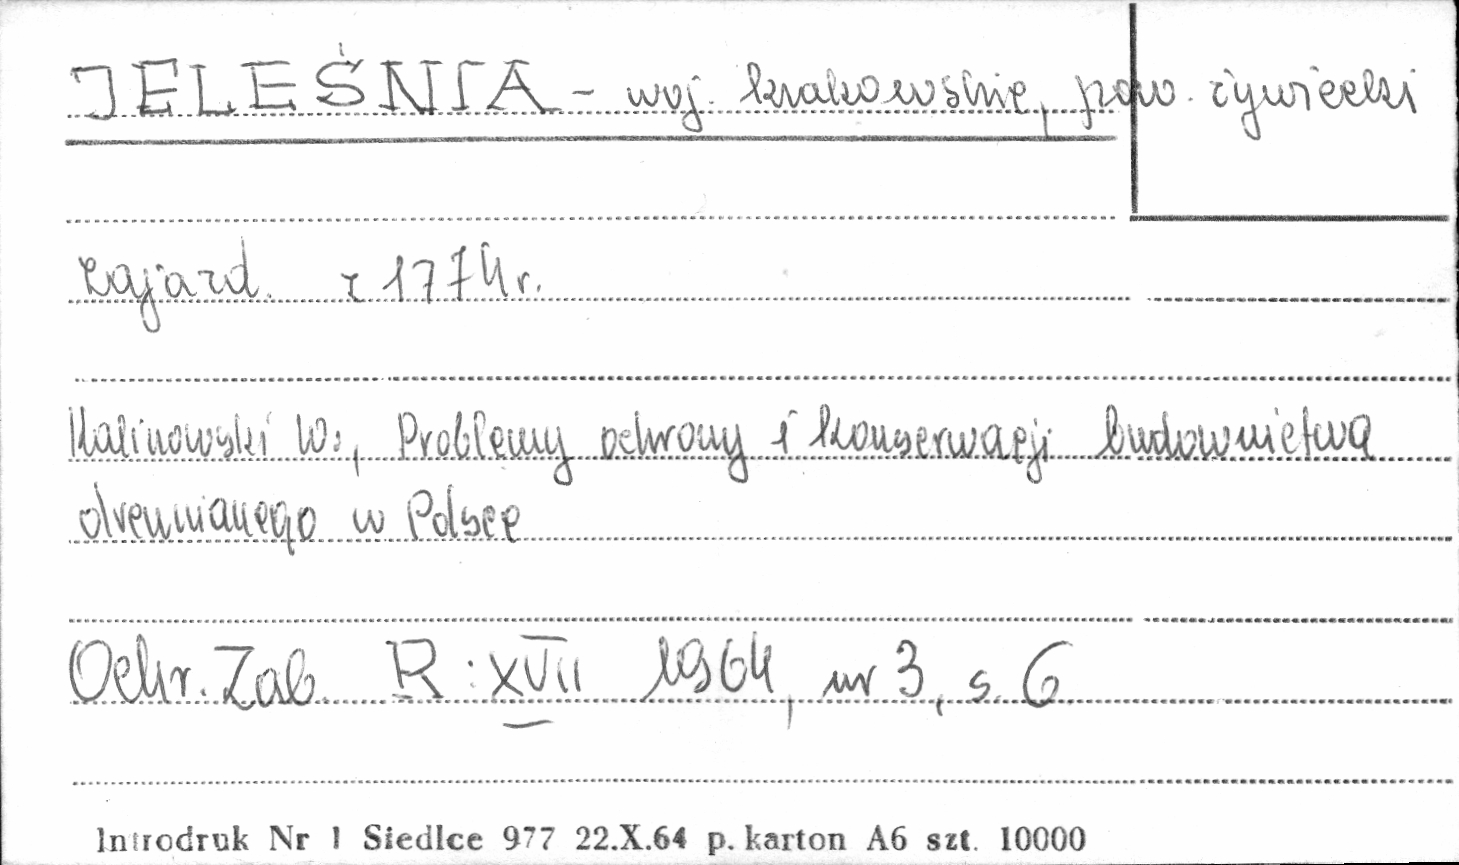 JELEŚNIA - woj. krakowskie, pow. żywiecki
zajazd. z 1774 r.
Kalinowski W:, Problemy ochrony i konserwacji budownictwa
drewnianego w Polsce
Ochr. Zab. R: XVII 1964, nr 3, s. 6
Introdruk Nr 1 Siedlce 977 22.X.64 p. karton A6 szt. 10000